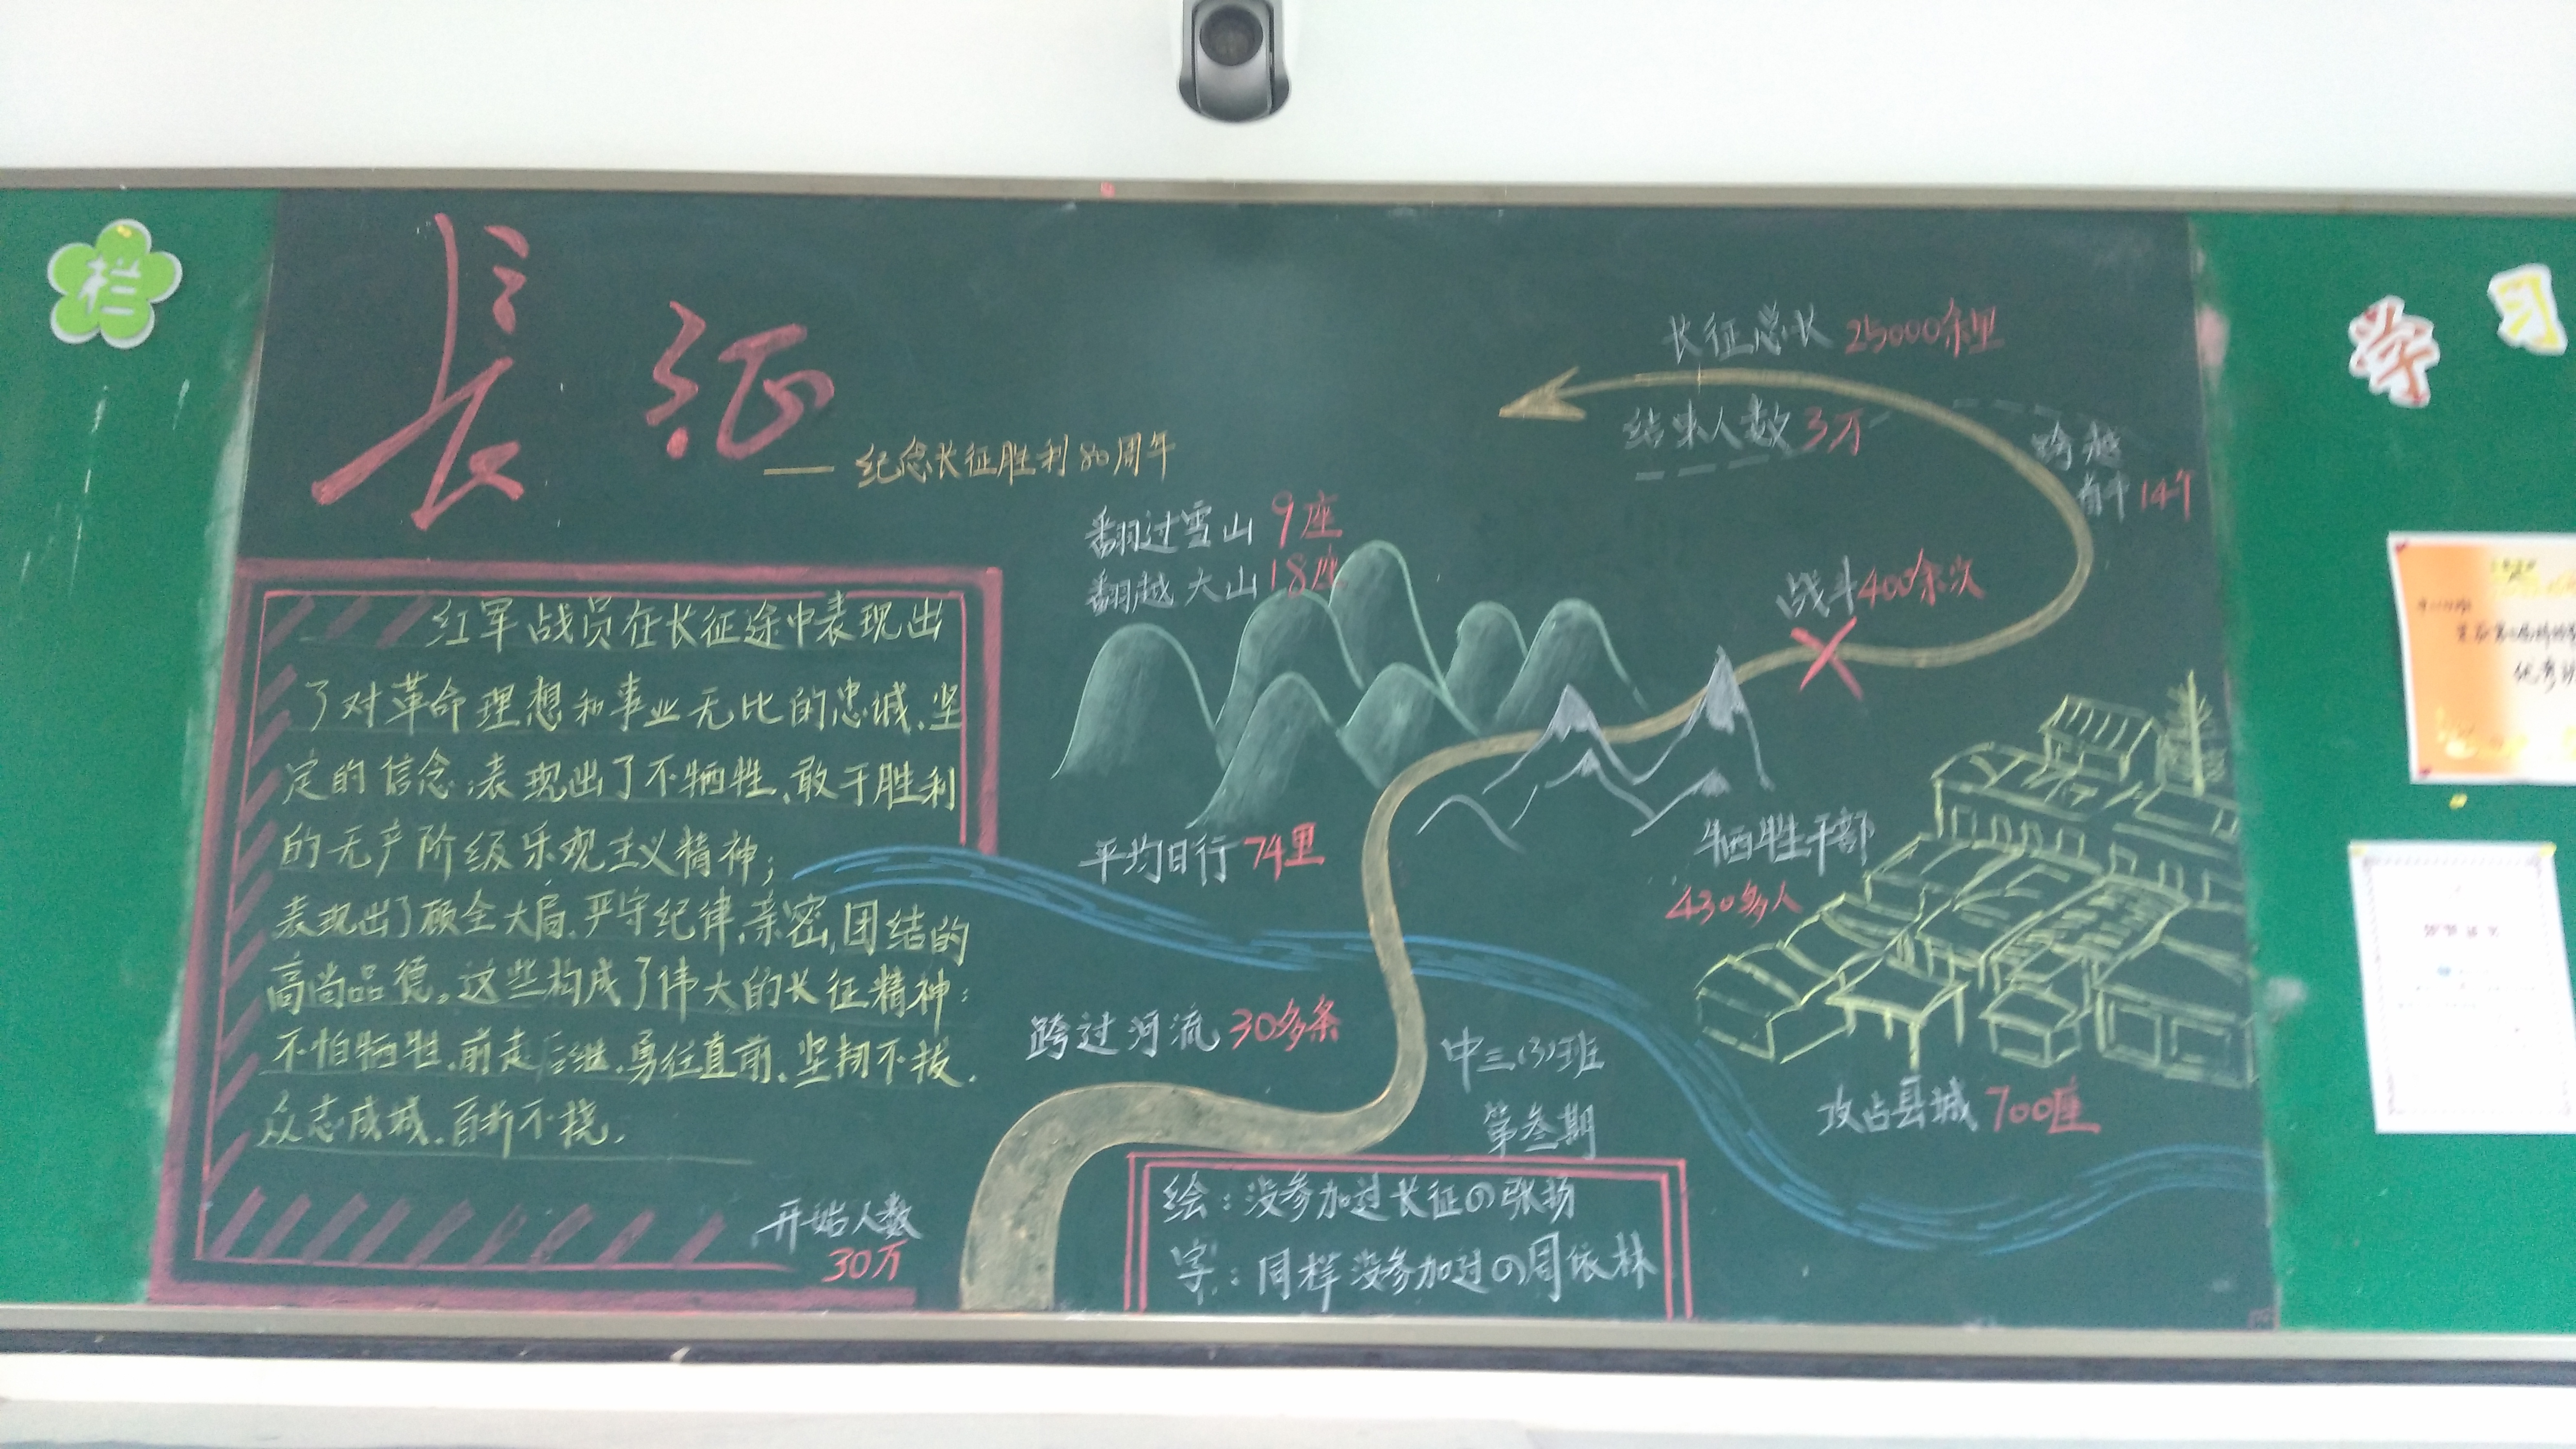 栏
長征
—— 纪念长征胜利80周年
红军战员在长征途中表现出
了对革命理想和事业无比的忠诚、坚
定的信念,表现出了不牺牲、敢于胜利
的无产阶级乐观主义精神;
表现出了顾全大局、严守纪律、亲密团结的
高尚品德。这些构成了伟大的长征精神:
不怕牺牲、前走后继、勇往直前、坚韧不拔、
众志成城、百折不挠。
开始人数
30万
翻过雪山 9座
翻越大山 18座
平均日行 74里
跨过河流 30多条
长征总长 25000余里
结束人数 3万
跨越
省 14个
战斗400余次
牺牲干部
430多人
攻占县城 700座
中三(3)班
第叁期
绘:没参加过长征の张扬
字:同样没参加过の周依林
学习